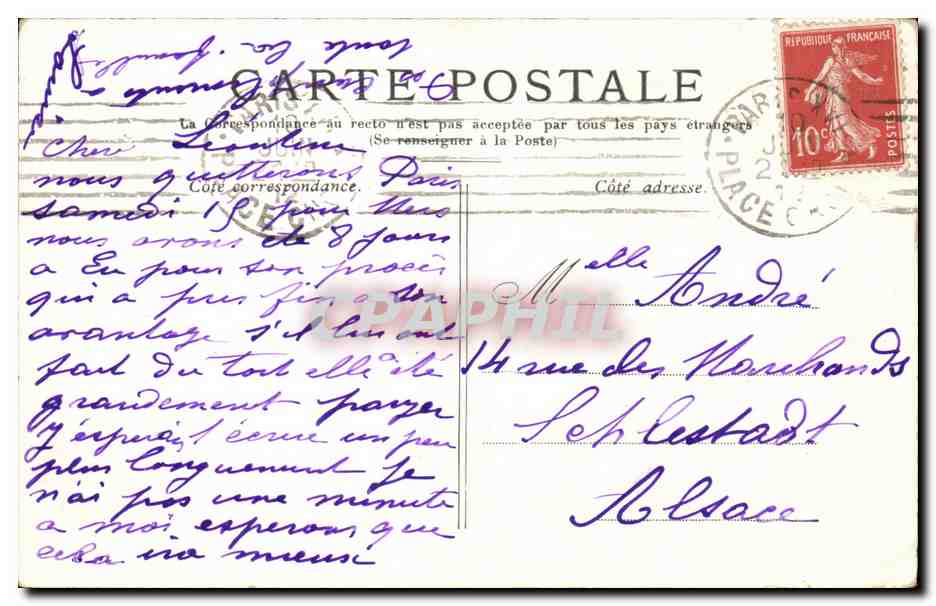 RÉPUBLIQUE FRANÇAISE
10c
POSTES
CARTE POSTALE
La Correspondance au recto n'est pas acceptée par tous les pays étrangers
(Se renseigner à la Poste)
Côté correspondance.
Côté adresse.
PARIS
PLACE
toute la famille
chere Léontine
nous quitterons Paris
samedi 15 pour
nous avons été 8 jours
a Eu pour son procès
qui a pris fin a son
avantage s'il lui ont
fait du tort elle a été
grandement payer
j'espérais t'écrire un peu
plus longuement je
n'ai pas une minute
a moi esperons que
cela ira mieux
Melle André
14 rue des Marchands
Schlestadt
Alsace
CPAPHIL